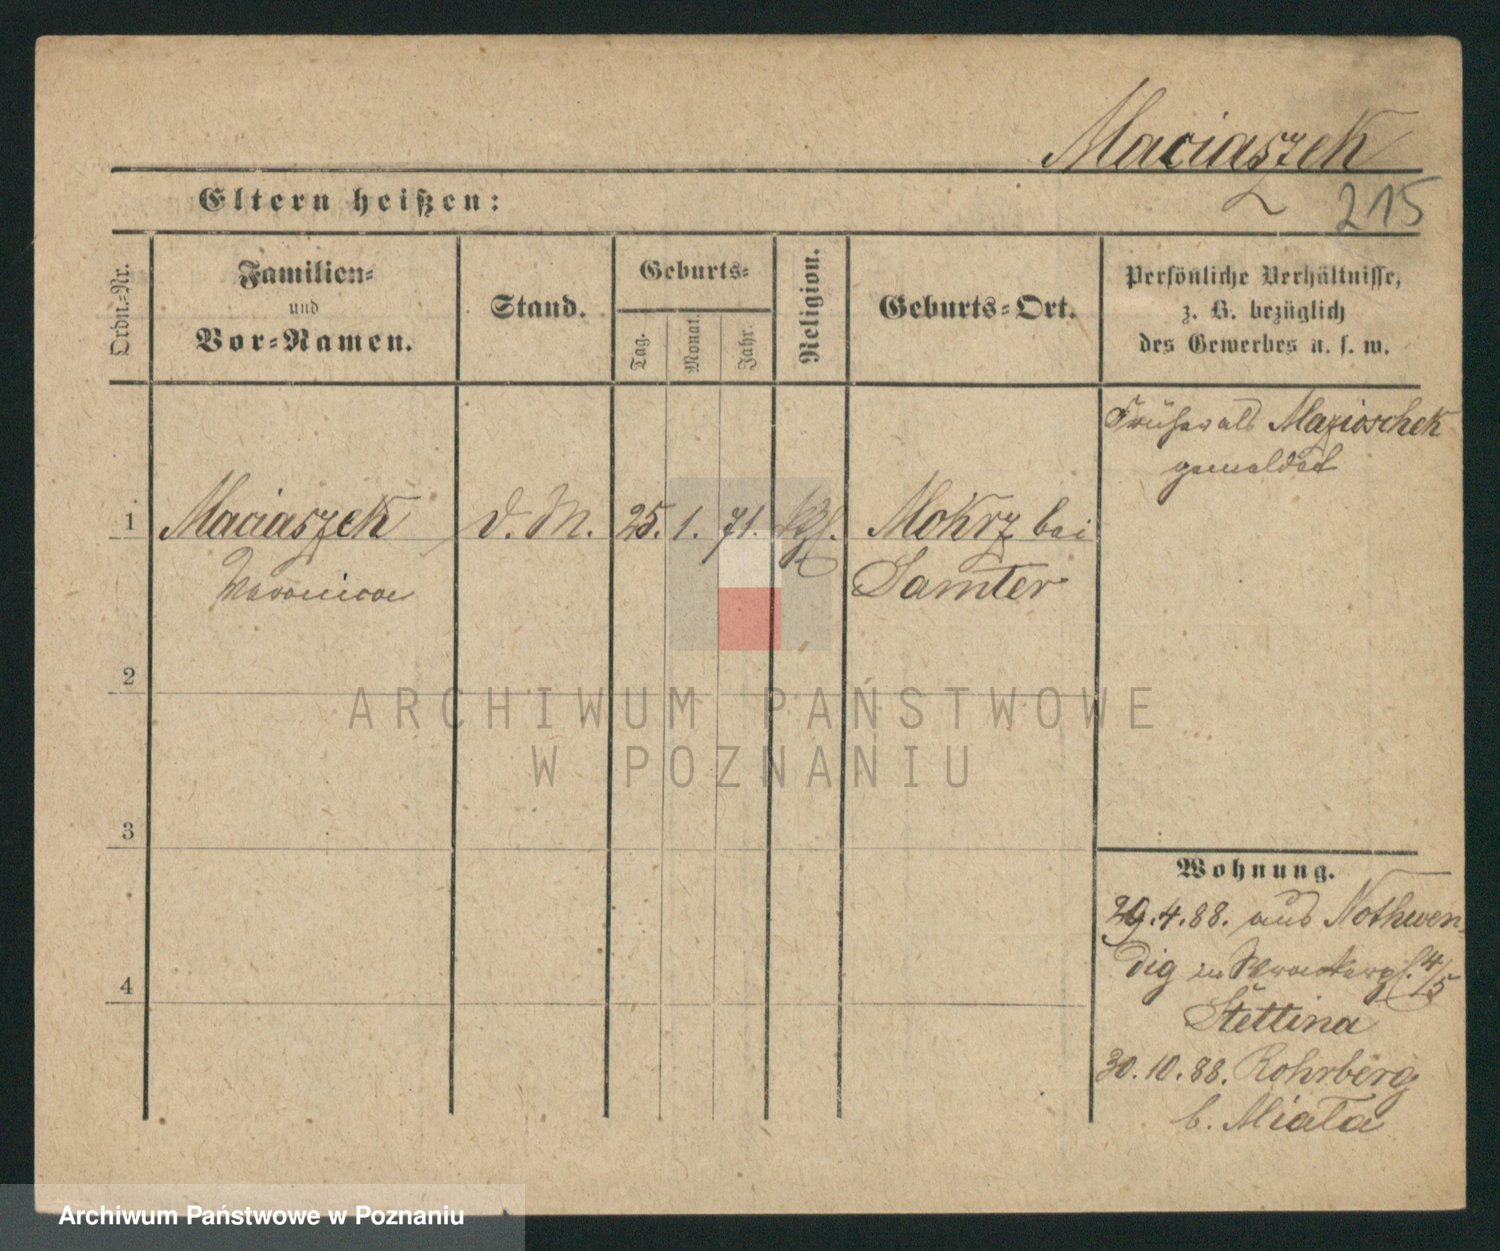 Maciaszek
Eltern heißen:
215
Ordn.-Nr.
Familien-
und
Vor-Namen.
Stand.
Geburts-
Tag.
Monat.
Jahr.
Religion.
Geburts-Ort.
Persönliche Verhältnisse,
z. B. bezüglich
des Gewerbes u. s. w.
Früher als Mazioschek
gemeldet
1 Maciaszek d. M. 25. 1. 71. kth. Mokrz bei
Veronica Samter
2
3
4
Wohnung.
29.4.88. aus Nothwen-
dig in 4/5
Stettina
30.10.88. Rohrberg
b. Miala
ARCHIWUM PAŃSTWOWE
W POZNANIU
Archiwum Państwowe w Poznaniu